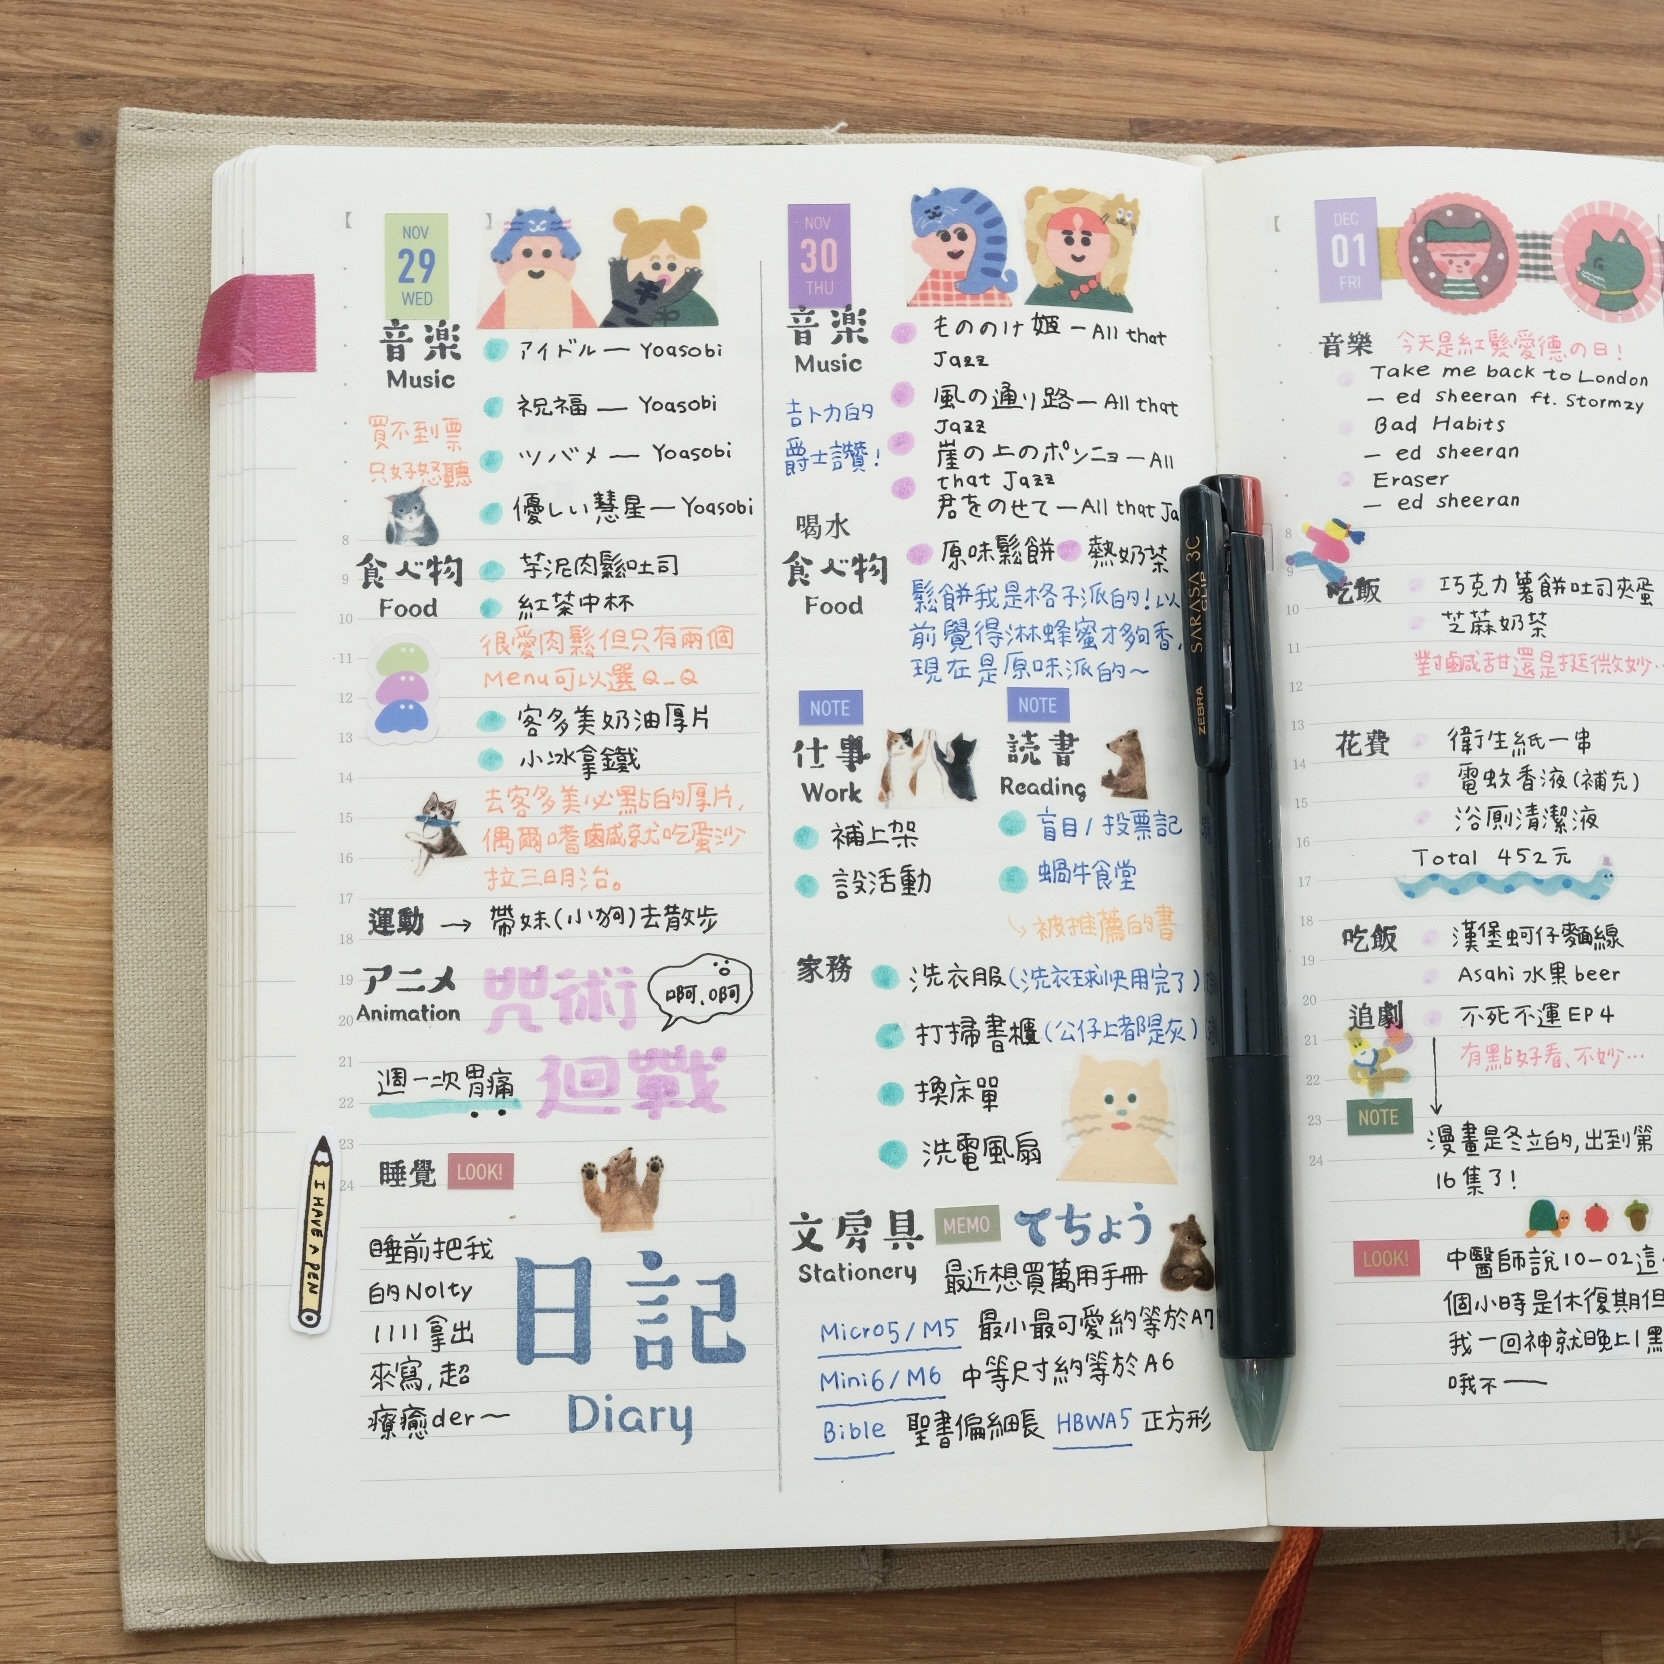 NOV
29
WED
音楽
Music
アイドル — Yoasobi
祝福 — Yoasobi
ツバメ — Yoasobi
優しい彗星 — Yoasobi
買不到票
只好怒聽
8
9
10
11
12
13
14
15
16
17
18
19
20
21
22
23
24
食べ物
Food
芋泥肉鬆吐司
紅茶中杯
很愛肉鬆但只有兩個
Menu可以選Q_Q
客多美奶油厚片
小冰拿鐵
去客多美必點的厚片,
偶爾嗜鹹就吃蛋沙
拉三明治。
運動 → 帶妹(小狗)去散步
アニメ
Animation
咒術
迴戰
啊,啊
週一次胃痛
睡覺
LOOK!
睡前把我
的Nolty
1111拿出
來寫,超
療癒der~
日記
Diary
I HAVE A PEN
NOV
30
THU
音楽
Music
もののけ姫 — All that
Jazz
風の通り路 — All that
Jazz
崖の上のポンニョ — All
that Jazz
君をのせて — All that Ja
吉卜力的
爵士讚!
喝水
食べ物
Food
原味鬆餅 熱奶茶
鬆餅我是格子派的!以
前覺得淋蜂蜜才夠香,
現在是原味派的~
NOTE
仕事
Work
補上架
設活動
NOTE
読書
Reading
盲目/投票記
蝸牛食堂
被推薦的書
家務
洗衣服(洗衣球快用完了)
打掃書櫃(公仔上都是灰)
換床單
洗電風扇
文房具
Stationery
MEMO
てちょう
最近想買萬用手冊
Micro5/M5 最小最可愛約等於A7
Mini6/M6 中等尺寸約等於A6
Bible 聖書偏細長 HBWA5 正方形
ZEBRA SARASA 3C
CLIP
DEC
01
FRI
音樂 今天是紅髮愛德の日!
Take me back to London
— ed sheeran ft. Stormzy
Bad Habits
— ed sheeran
Eraser
— ed sheeran
8
9
10
11
12
13
14
15
16
17
18
19
20
21
22
23
24
吃飯
巧克力薯餅吐司夾蛋
芝麻奶茶
對鹹甜還是挺微妙…
花費
衛生紙一串
電蚊香液(補充)
浴廁清潔液
Total 452元
吃飯
漢堡蚵仔麵線
Asahi 水果beer
追劇
不死不運EP4
有點好看、不妙…
NOTE
漫畫是冬立的,出到第
16集了!
LOOK!
中醫師說10-02這
個小時是休復期但
我一回神就晚上1點
哦不——